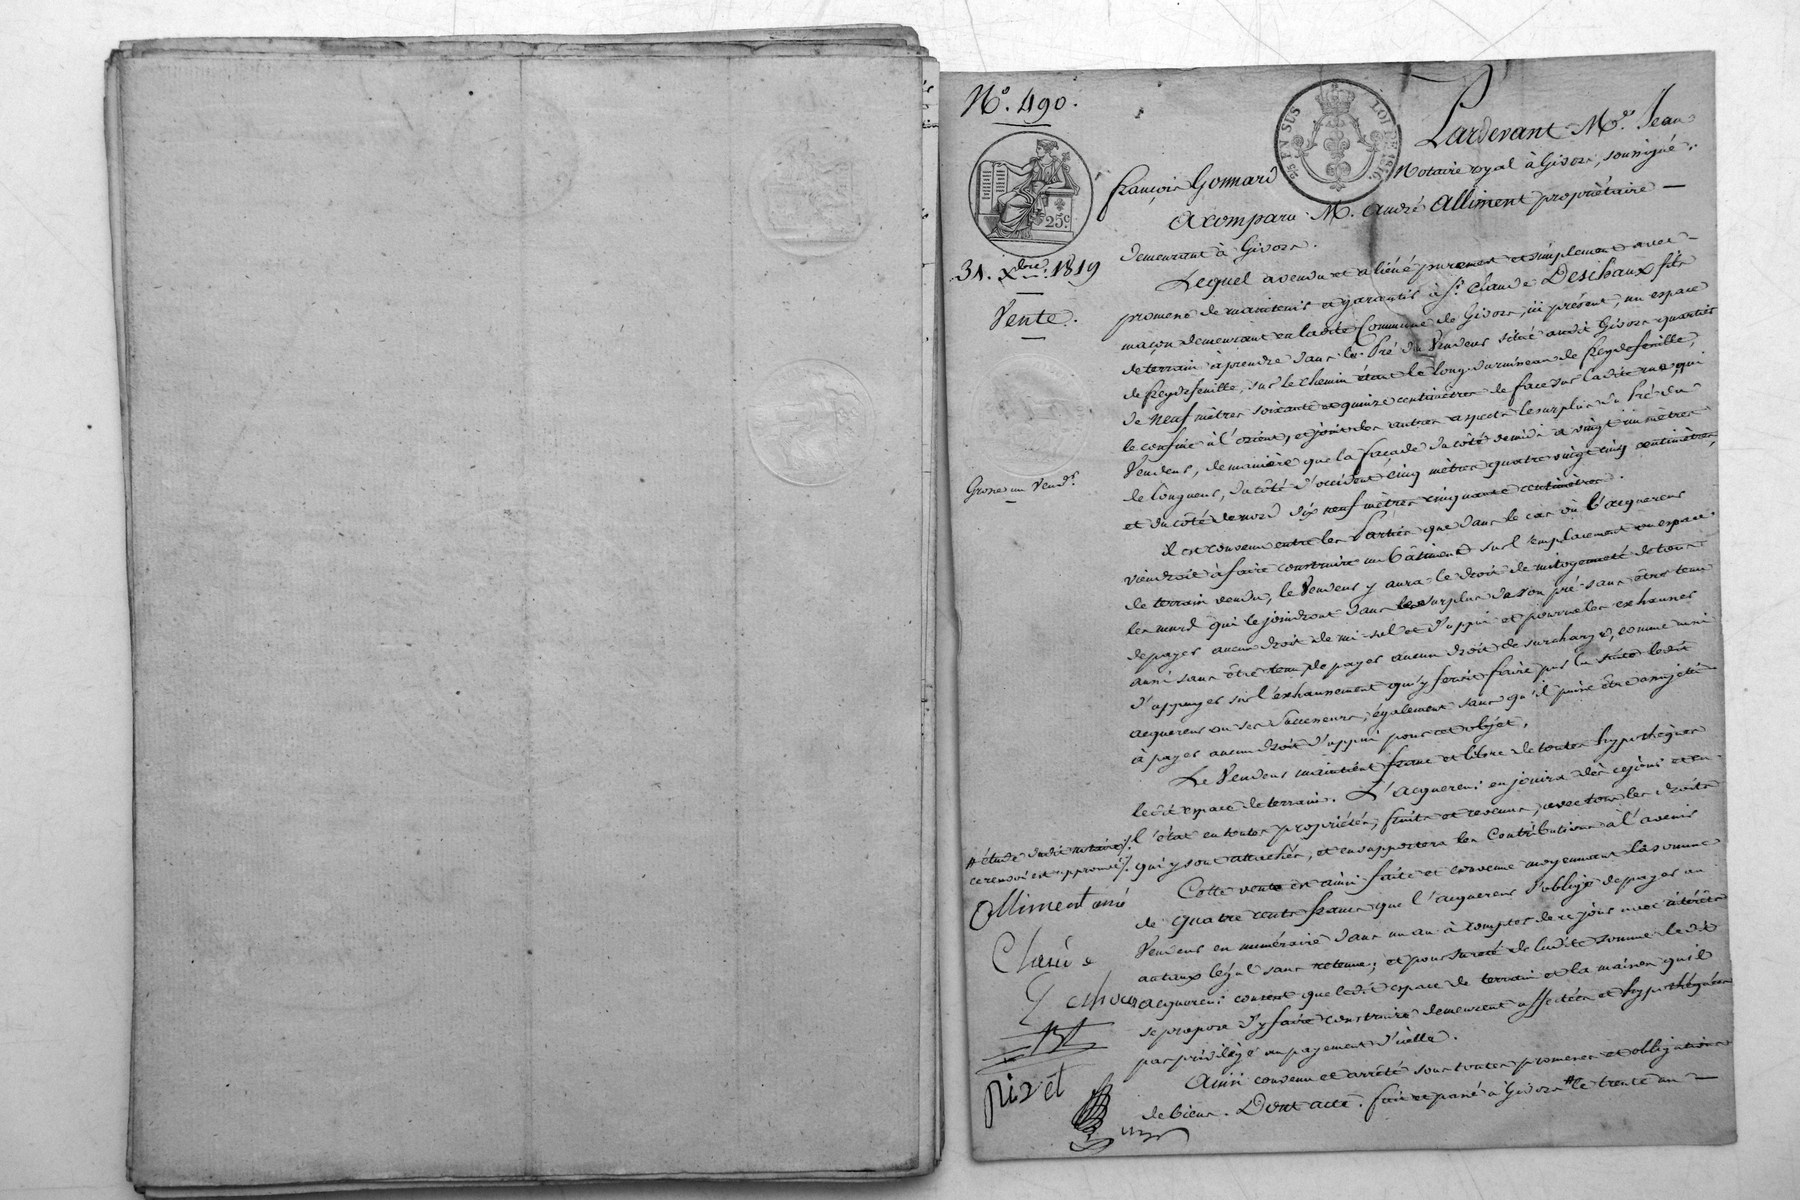 N.º 490.
25 EN SUS LOI DE 1816
25 c.
31. Xbre. 1819
Vente.
Grosse au Vendr.
Pardevant Me. Jean
françois Gonnard Notaire royal à Givors, soussigné.
A comparu M. André Alliment propriétaire
demeurant à Givors.
Lequel a vendu et aliéné purement et simplement avec
promesse de maintenir et garantir à Sr. Claude Deschaux fils
maçon demeurant en ladite Commune de Givors, ici présent, un espace
de terrain à prendre dans le Pré du Vendeur situé audit Givors quartier
de , sur le chemin étant le long du ruisseau de ,
de neuf mètres soixante et quinze centimètres de face sur ladite rue, qui
le confine à l'orient, et joint des autres aspects le surplus du Pré du
Vendeur, de manière que la façade du côté de midi a vingt un mètres
de longueur, du côté d'occident cinq mètres quatre vingt cinq centimètres,
et du côté de nord dix neuf mètres cinquante centimètres.
il est convenu entre les Parties que dans le cas où l'acquereur
viendroit à faire construire un bâtiment sur l'emplacement ou espace
de terrain vendu, le Vendeur y aura le droit de mitoyenneté de tous
les murs qui le joindront dans le surplus da son pré sans être tenu
de payer aucun droit de mi-sol et d'appui et pourra les exhausser
aussi sans être tenu de payer aucun droit de surcharge, comme aussi
d'appuyer sur l'exhaussement qu'y feroit faire par la suite ledit
acquereur ou ses Successeurs, également sans qu'il puisse être assujéti
à payer aucun droit d'appui pour cet objet.
Le Vendeur maintient franc et libre de toutes hypothèques
ledit espace de terrain. L'acquereur en jouira dès ce jour et en
l'état en toutes propriétés, fruits et revenus, avec tous les droits
qui y sont attachés, et en supportera les Contributions à l'avenir
Cette vente est ainsi faite et convenue moyennant la somme
de quatre cents francs que l'acquereur s'oblige de payer au
Vendeur en numéraire dans un an à compter de ce jour avec intérêts
au taux légal sans retenue; et pour sureté de ladite somme ledit
acquereur consent que ledit espace de terrain et la maison qu'il
se propose d'y faire construire demeurent affectées et hypothéquées
par privilège au payement d'icelle.
Ainsi convenu et arrêté sous toutes promesses et obligations
de biens. Dont acte. fait et passé à Givors # le trente un
# étude dudit notaire /.
ce renvoi est approuvé /.
Alliment ainé
Claude
Dechaux
Rivet